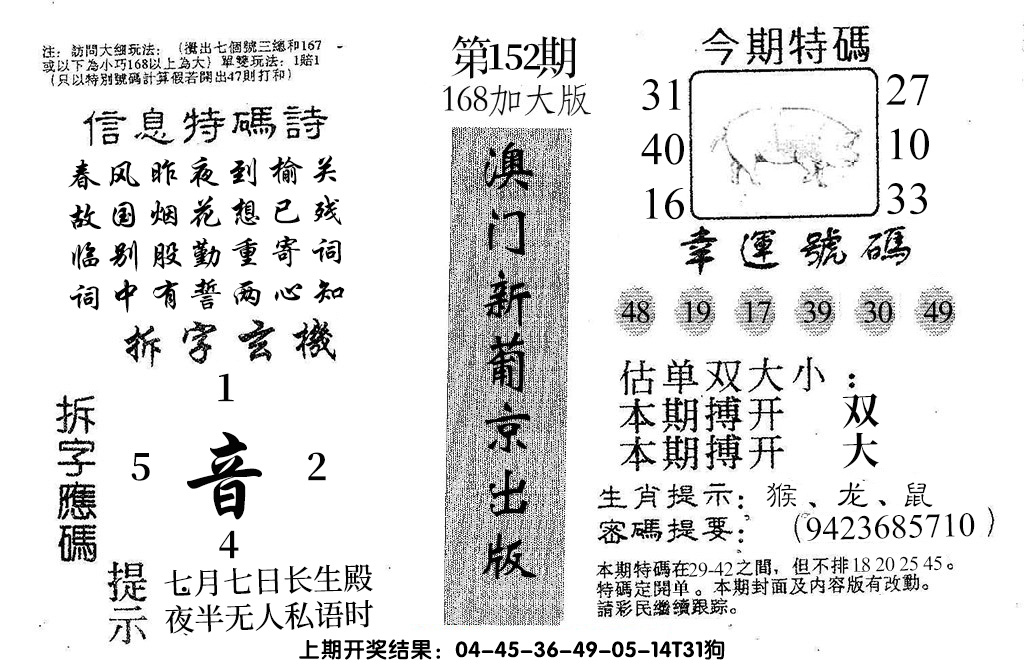 注：訪問大细玩法：（攪出七個號三總和167
或以下為小巧168以上為大）單雙玩法：1賠1
（只以特別號碼計算假若開出47則打和）
信息特碼詩
春风昨夜到榆关
故国烟花想已残
临别股勤重寄词
词中有誓两心知
拆字玄機
拆字應碼
1
5 音 2
4
提示
七月七日长生殿
夜半无人私语时
第152期
168加大版
澳门新葡京出版
今期特碼
31 27
40 10
16 33
幸運號碼
48 19 17 39 30 49
估单双大小：
本期搏开 双
本期搏开 大
生肖提示：猴、龙、鼠
密碼提要：（9423685710）
本期特碼在29-42之間，但不排18 20 25 45。
特碼定開单。本期封面及内容版有改動。
請彩民繼續跟踪。
上期开奖结果：04-45-36-49-05-14T31狗